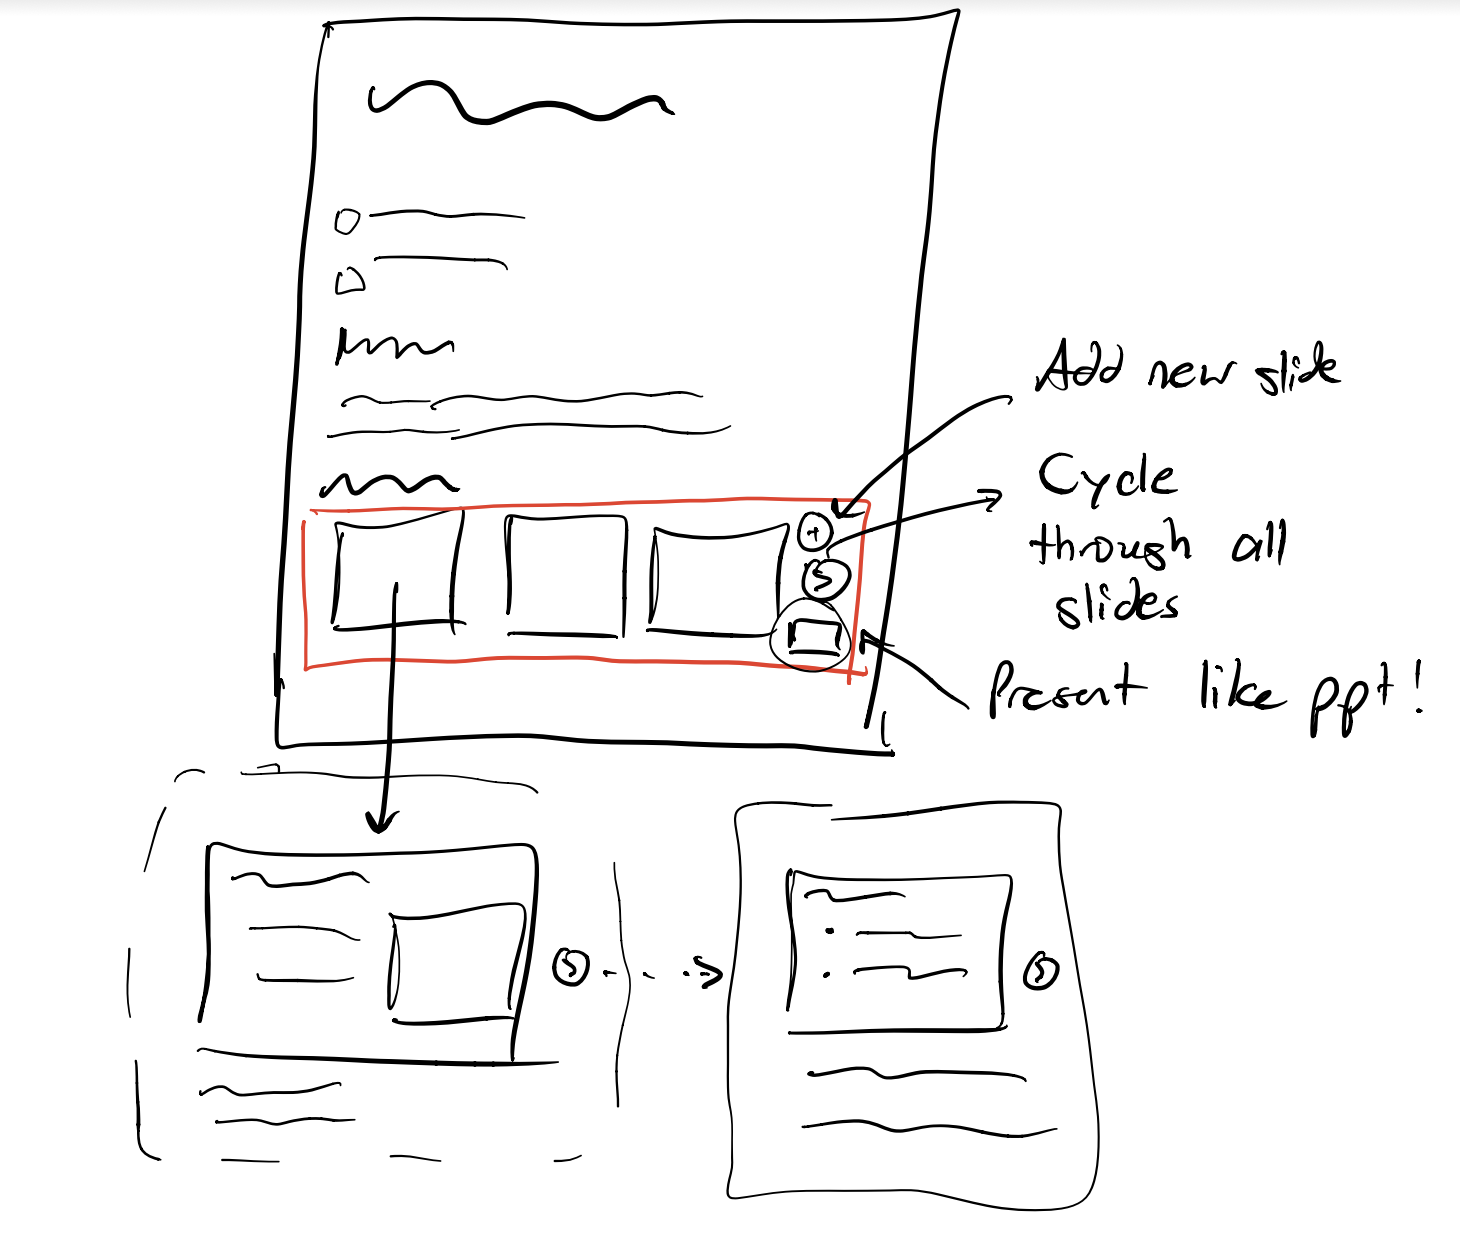 Add new slide
Cycle
through all
slides
Present like ppt!